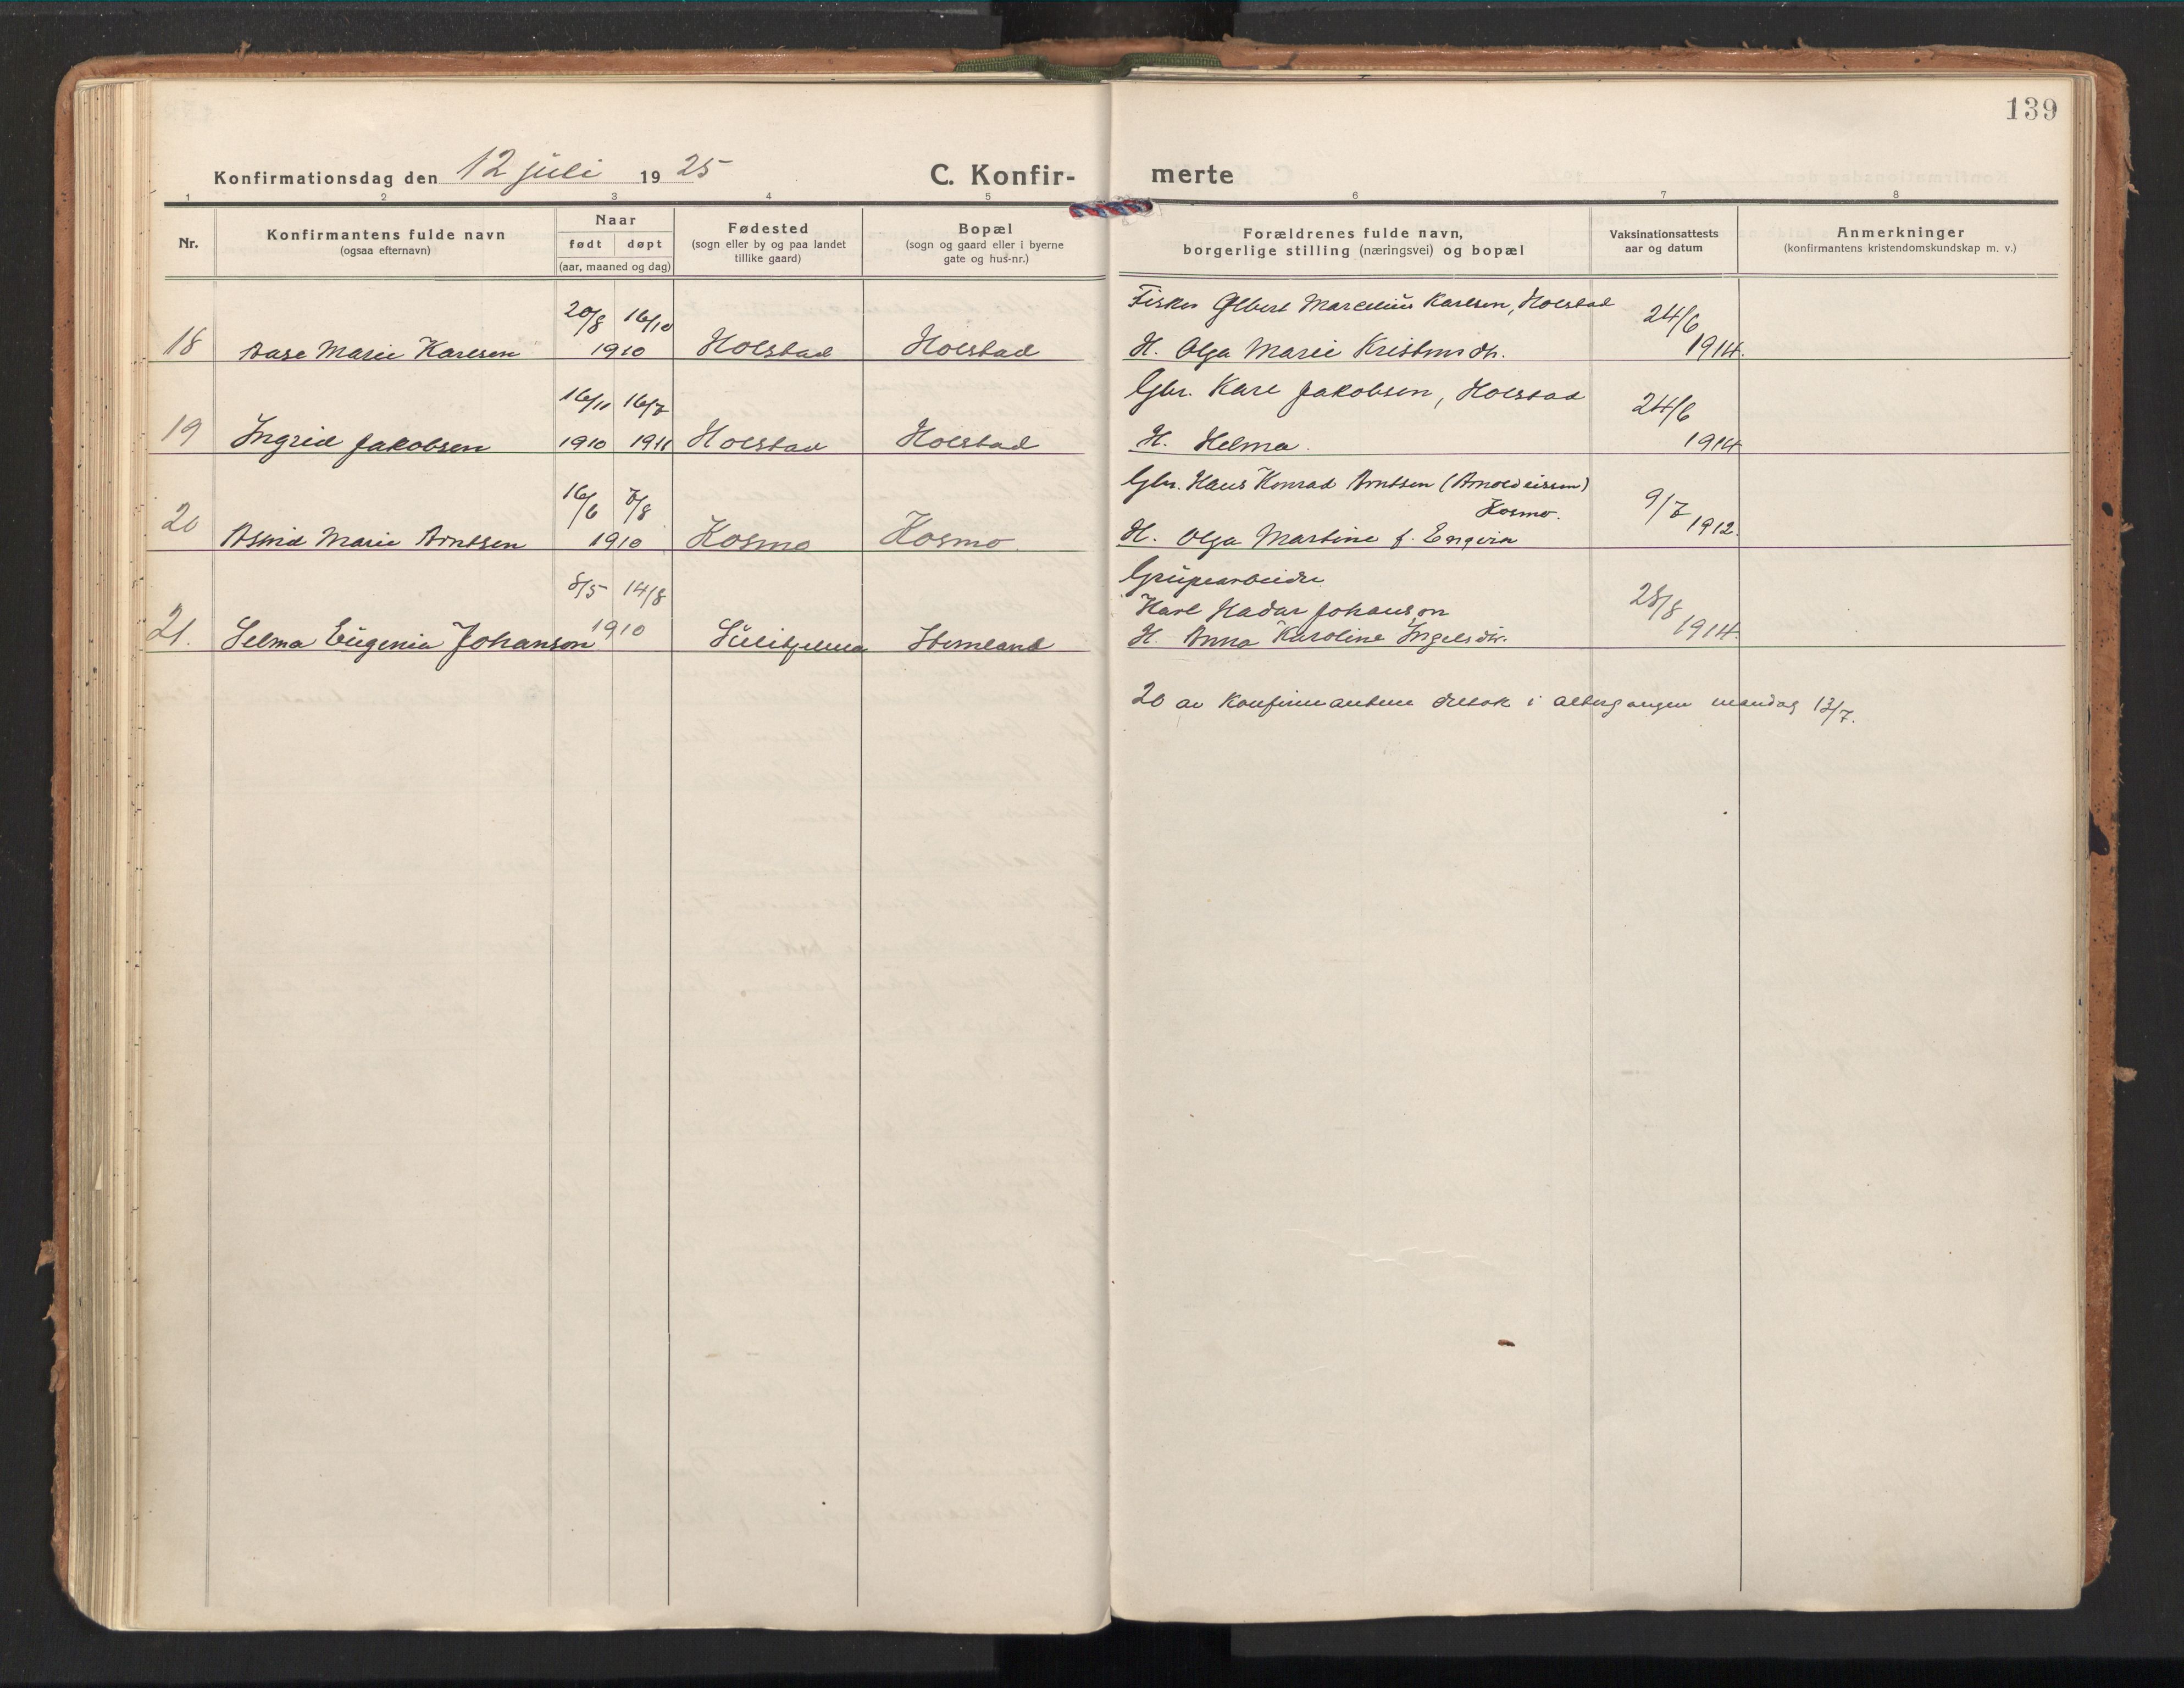 139
Konfirmationsdag den 12 juli 1925
C. Konfir- merte
1 2 3 4 5 6 7 8
Nr.
Konfirmantens fulde navn
(ogsaa efternavn)
Naar
født døpt
(aar, maaned og dag)
Fødested
(sogn eller by og paa landet
tillike gaard)
Bopæl
(sogn og gaard eller i byerne
gate og hus-nr.)
Forældrenes fulde navn,
borgerlige stilling (næringsvei) og bopæl
Vaksinationsattests
aar og datum
Anmerkninger
(konfirmantens kristendomskundskap m. v.)
20/8 16/10 Fisker Albert Marcelius Karlsen, Holstad 24/6
18 Aase Marie Karlsen 1910 Holstad Holstad H. Olga Marie Kristensdtr. 1914.
16/11 16/7 Gbr. Karl Jakobsen, Holstad 24/6
19 Ingrid Jakobsen 1910 1911 Holstad Holstad H. Helma. 1914
16/6 7/8 Gbr. Hans Konrad Arntsen (Arnoldussen) 9/7
Kosmo.
20 Astrid Marie Arntsen 1910 Kosmo Kosmo. H. Olga Martine f. Engvin 1912.
8/5 14/8 Grubearbeider
Karl Hadar Johanson 28/8
21. Selma Eugenia Johanson 1910 Sulitjelma Hemland H. Anna Karoline Ingelsdtr. 1914.
20 av konfirmantene deltok i altergangen mandag 13/7.